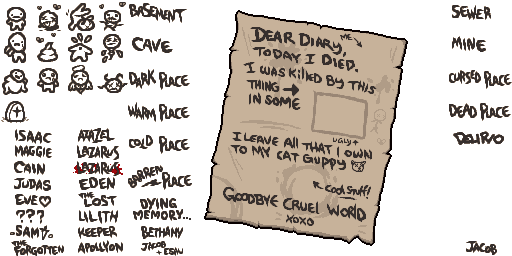 BASEMENT
CAVE
DARK PLACE
WARM PLACE
COLD PLACE
BARREN PLACE
ISAAC
MAGGIE
CAIN
JUDAS
EVE♡
???
SAMSON
THE FORGOTTEN
AZAZEL
LAZARUS
LAZARUS
EDEN
THE LOST
LILITH
KEEPER
APOLLYON
DYING
MEMORY...
BETHANY
JACOB
+ ESAU
DEAR DIARY,
ME
TODAY I DIED.
I WAS KILLED BY THIS
THING →
IN SOME
UGLY↑
I LEAVE ALL THAT I OWN
TO MY CAT GUPPY
COOL STUFF!
GOODBYE CRUEL WORLD
XOXO
SEWER
MINE
CURSED PLACE
DEAD PLACE
DELIRIO
JACOB